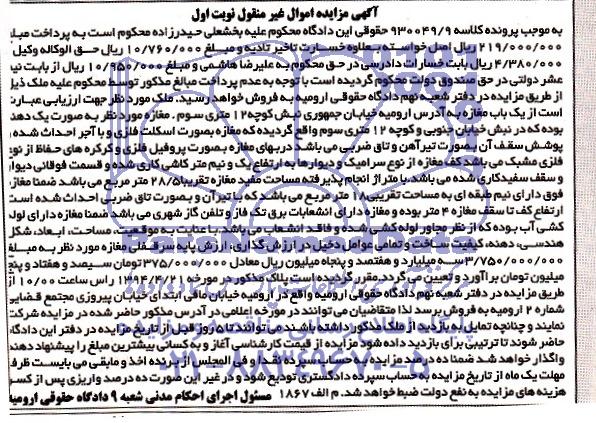 آگهی مزایده اموال غیر منقول نوبت اول
به موجب پرونده کلاسه ۹۳۰۰۴۹/۹ حقوقی این دادگاه محکوم علیه بخشعلی حیدرزاده محکوم است به پرداخت مبلغ
۲۱۹/۰۰۰/۰۰۰ ریال اصل خواسته بعلاوه خسارت تاخیر تادیه و مبلغ ۱۰/۷۶۰/۰۰۰ ریال حق الوکاله وکیل
۴/۳۸۰/۰۰۰ ریال بابت خسارات دادرسی در حق محکوم به علیرضا هاشمی و مبلغ ۱۰/۹۵۰/۰۰۰ ریال از بابت نیم
عشر دولتی در حق صندوق دولت محکوم گردیده است با توجه به عدم پرداخت مبالغ مذکور توسط محکوم علیه ملک ذیل
از طریق مزایده در دفتر شعبه نهم دادگاه حقوقی ارومیه به فروش خواهد رسید. ملک مورد نظر جهت ارزیابی عبارت
است از یک باب مغازه به آدرس ارومیه خیابان جمهوری نبش کوچه ۱۲ متری سوم . مغازه مورد نظر به صورت یک دهنه
بوده که در نبش خیابان جنوبی و کوچه ۱۲ متری سوم واقع گردیده که مغازه بصورت اسکلت فلزی و با آجر احداث شده و
پوشش سقف آن بصورت تیرآهن و تاق ضربی می باشد دربهای مغازه بصورت پروفیل فلزی و کرکره های حفاظ از نوع
فلزی مشبک می باشد کف مغازه از نوع سرامیک و دیوارها به ارتفاع یک و نیم متر کاشی کاری شده و قسمت فوقانی دیوار
و سقف سفیدکاری شده می باشد با متراژ انجام پذیرفته مساحت مفید مغازه تقریبا ۲۸/۵ متر مربع می باشد ضمنا مغازه
فوق دارای نیم طبقه ای به مساحت تقریبی ۱۸ متر مربع می باشد که با تیرآن و بصورت تاق ضربی احداث شده است
ارتفاع کف تا سقف مغازه ۴ متر بوده و مغازه دارای انشعابات برق تک فاز و تلفن گاز شهری می باشد ضمنا مغازه دارای لوله
کشی آب بوده که از نظر مجاور لوله کشی شده و فاقد انشعاب می باشد با عنایت به موقعیت، مساحت، ابعاد، شکل
هندسی، دهنه، کیفیت ساخت و تمامی عوامل دخیل در ارزش گذاری، ارزش پایه سرقفلی مغازه مورد نظر به مبلغ
۳/۷۵۰/۰۰۰/۰۰۰ سه میلیارد و هفتصد و پنجاه میلیون ریال معادل ۳۷۵/۰۰۰/۰۰۰ تومان سیصد و هفتاد و پنج
میلیون تومان برآورد و تعیین می گردد. مقرر گردیده است پلاک مذکور در مورخه ۱۳۹۴/۴/۲۱ راس ساعت ۱۰/۰۰ از
طریق مزایده در دفتر شعبه نهم دادگاه حقوقی ارومیه واقع در ارومیه خیابان مافی ابتدای خیابان پیروزی مجتمع قضایی
شماره ۲ ارومیه به فروش برسد لذا متقاضیان می توانند در مورخه اعلامی در آدرس مذکور حاضر شده در مزایده شرکت
نمایند و چنانچه تمایل به بازدید از ملک مذکور داشته باشند می توانند تا ۵ روز قبل از تاریخ مزایده در دفتر این دادگاه
حاضر شوند تا ترتیبی برای بازدید داده شود مزایده از قیمت کارشناسی آغاز و به کسانی بیشترین مبلغ را پیشنهاد دهند
واگذار خواهد شد ضمنا ده درصد مزایده به حساب سپرده نقدا و فی المجلس از برنده اخذ و مابقی می بایست ظرف
مهلت یک ماه از تاریخ مزایده به حساب سپرده دادگستری تودیع شود و در غیر این صورت ده درصد واریزی پس از کسر
هزینه های مزایده به نفع دولت ضبط خواهد شد. م الف ۱۸۶۷ مسئول اجرای احکام مدنی شعبه ۹ دادگاه حقوقی ارومیه
۰۲۱-۸۸۳۴۹۶۷۰-۵